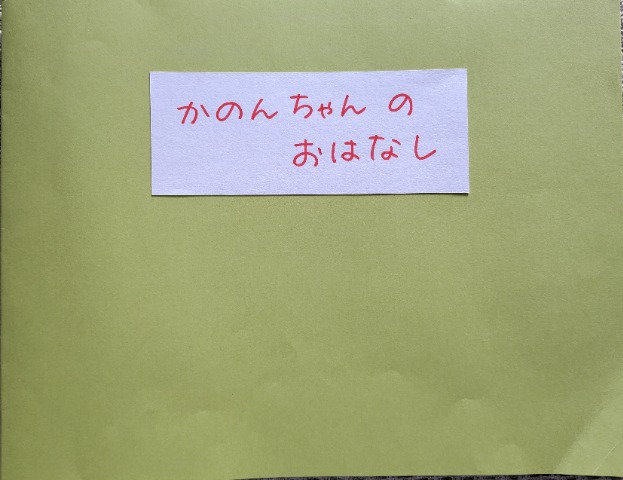 かのんちゃんの
おはなし